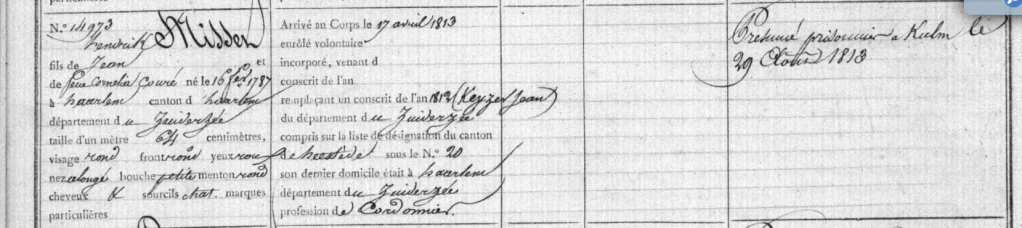 particulières
N.° 14973
Hendrik Misset
fils de Jean et
de feue Cornelia Couré né le 16 fév 1787
à haarlem canton d haarlem
département du Zuiderzée
taille d'un mètre 64 centimètres,
visage rond front rond yeux roux
nez alongé bouche petite menton rond
cheveux & sourcils chat. marques
particulières
Arrivé au Corps le 17 avril 1813
enrôlé volontaire
incorporé, venant d
conscrit de l'an
remplaçant un conscrit de l'an 1812 (Keyzer Jean)
du département du Zuiderzée
compris sur la liste de désignation du canton
de heestede sous le N.° 20
son dernier domicile était à haarlem
département du Zuiderzée
profession de Cordonnier.
Présumé prisonnier a Kulm le
29 Août 1813